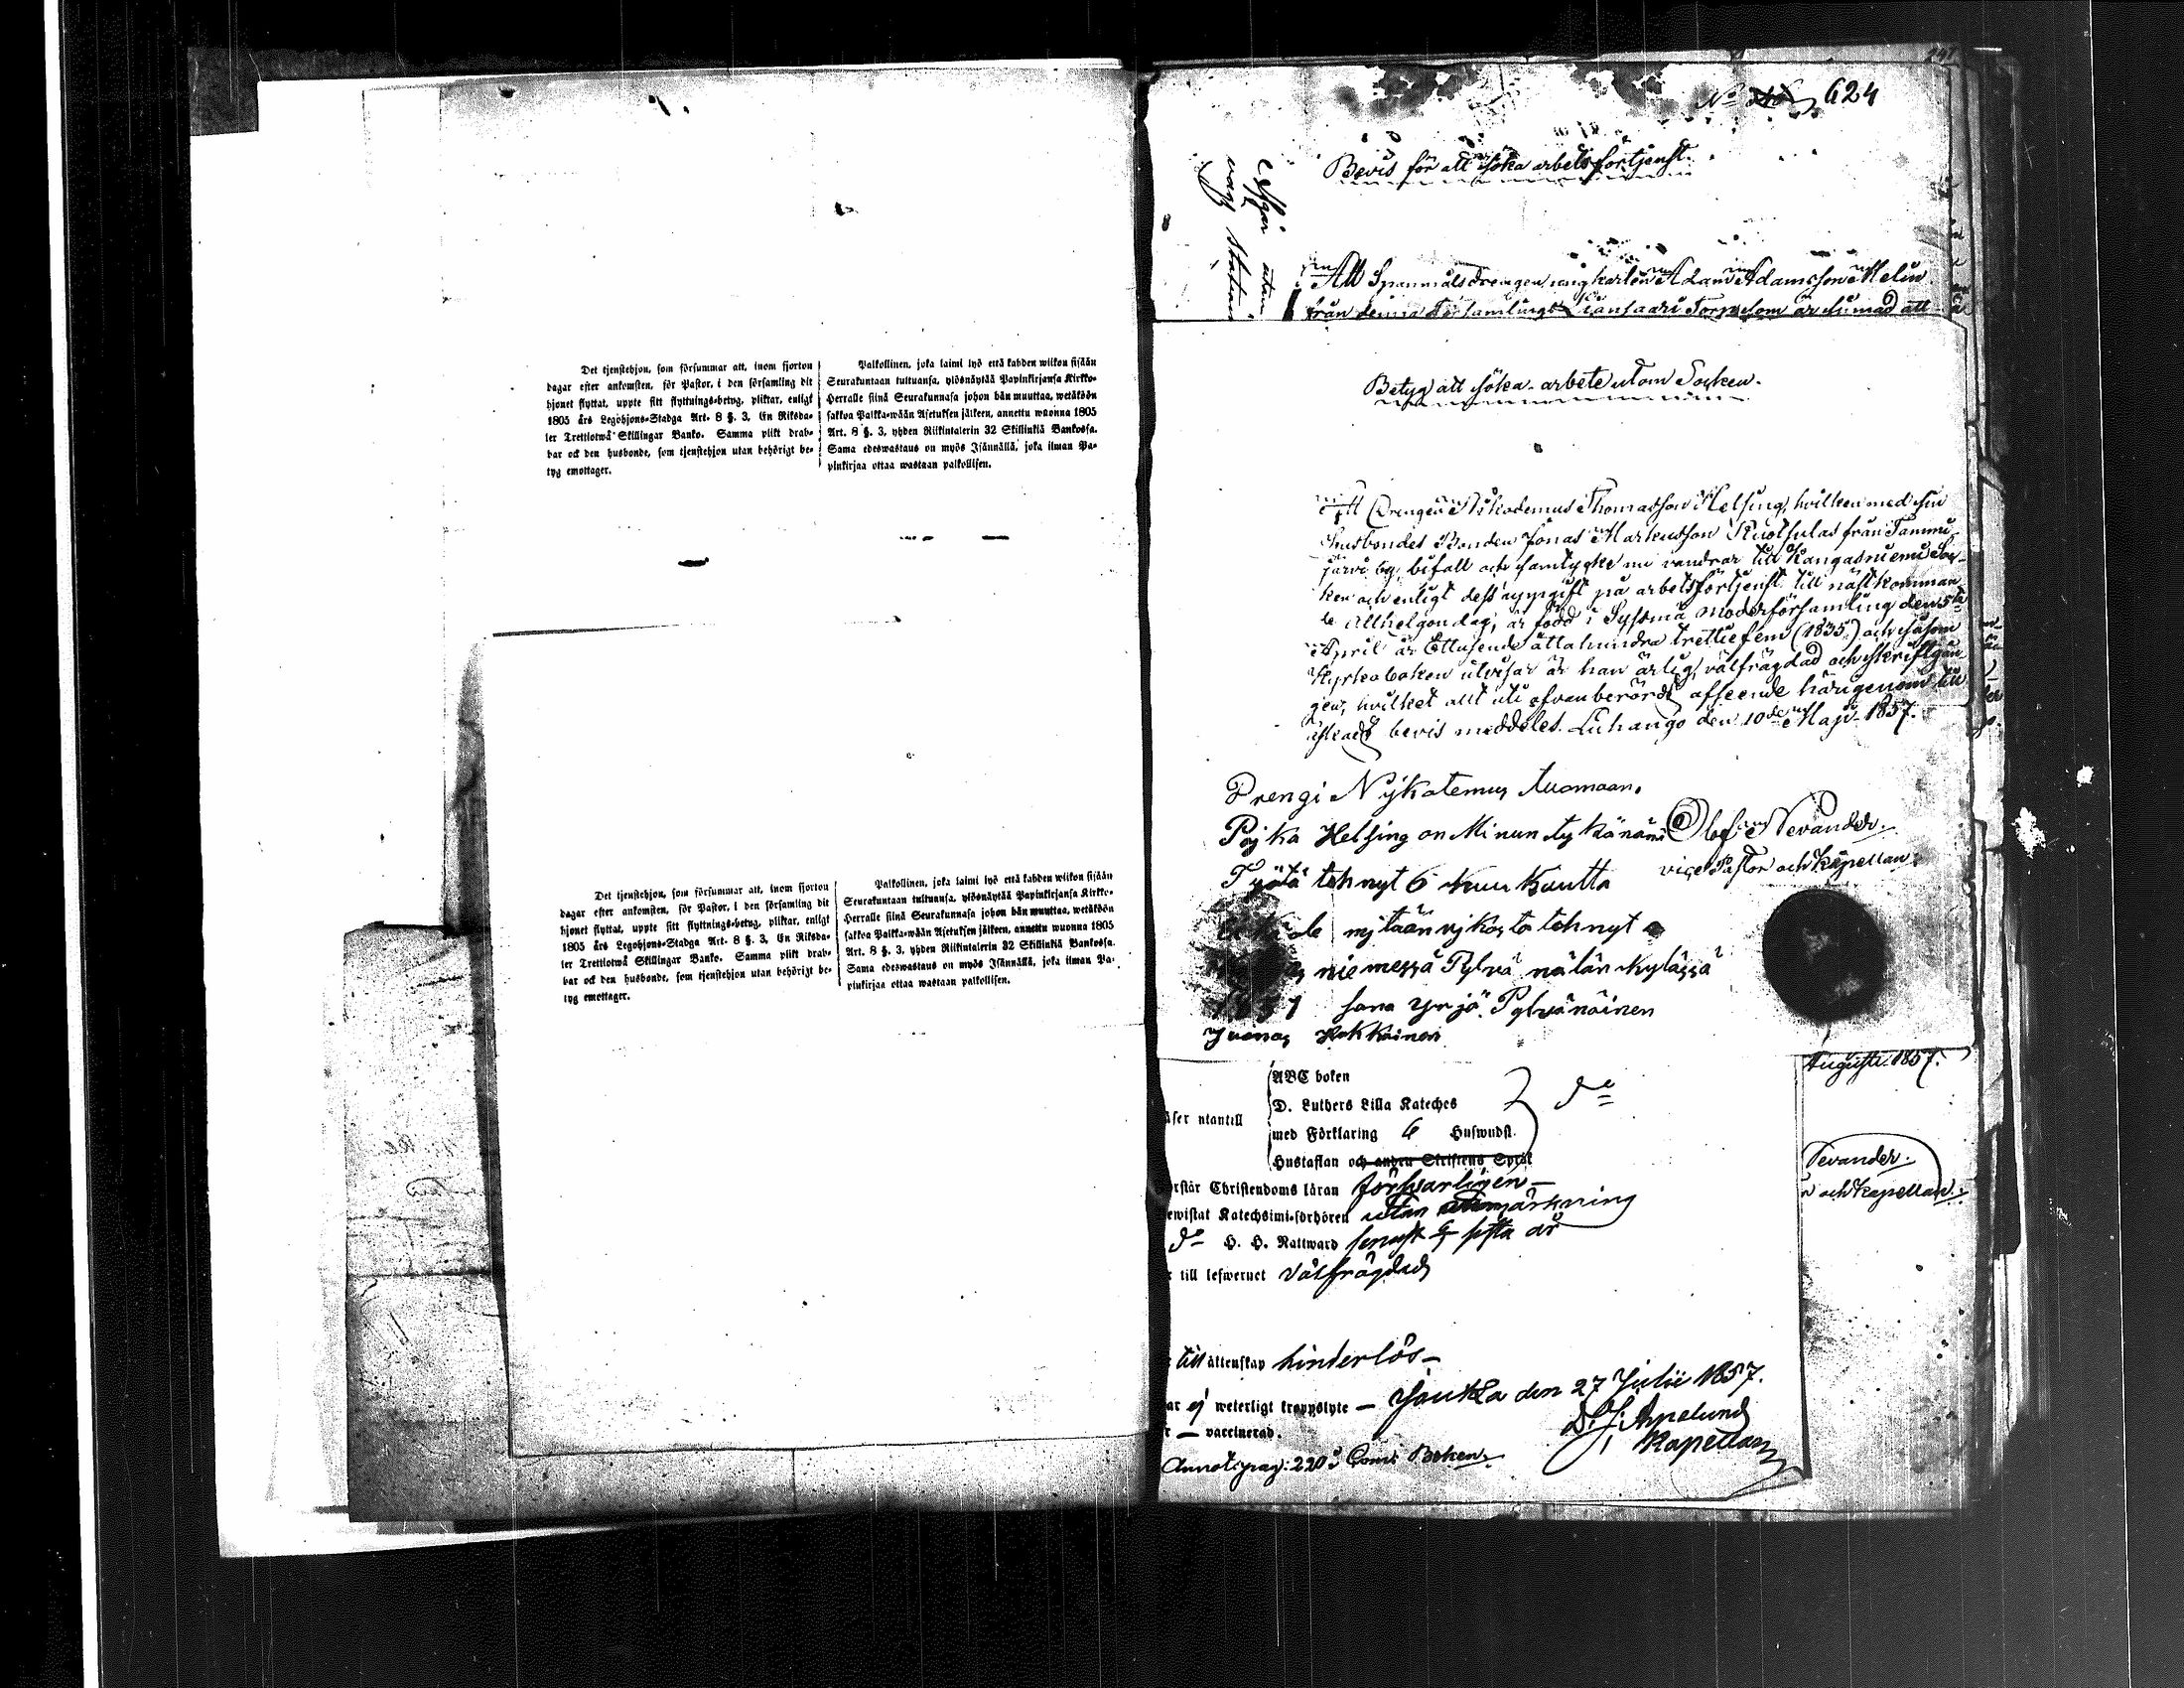 Det tjenstehjon, som försummar att, inom fjorton
dagar efter ankomsten, för Pastor, i den församling dit
hjonet flyttat, uppte sitt flyttnings-betyg, pliktar, enligt
1805 års Legohjons-Stadga Art. 8 §. 3, En Riksda-
ler Trettiotwå Skillingar Banko. Samma plikt drab-
bar ock den husbonde, som tjenstehjon utan behörigt be-
tyg emottager.
Palkollinen, joka laimi lyö että kahden wiikon sisään
Seurakuntaan tultuansa, ylösnäytää Papinkirjansa Kirkko-
Herralle siinä Seurakunnasa johon hän muuttaa, wetäköön
sakkoa Palkka-wään Asetuksen jälkeen, annettu wuonna 1805
Art. 8 §. 3, yhden Riikintalerin 32 Skillinkiä Bankossa.
Sama edeswastaus on myös Isännällä, joka ilman Pa-
pinkirjaa ottaa wastaan palkollisen.
Det tjenstehjon, som försummar att, inom fjorton
dagar efter ankomsten, för Pastor, i den församling dit
hjonet flyttat, uppte sitt flyttnings-betyg, pliktar, enligt
1805 års Legohjons-Stadga Art. 8 §. 3, En Riksda-
ler Trettiotwå Skillingar Banko. Samma plikt drab-
bar ock den husbonde, som tjenstehjon utan behörigt be-
tyg emottager.
Palkollinen, joka laimi lyö että kahden wiikon sisään
Seurakuntaan tultuansa, ylösnäytää Papinkirjansa Kirkko-
Herralle siinä Seurakunnasa johon hän muuttaa, wetäköön
sakkoa Palkka-wään Asetuksen jälkeen, annettu wuonna 1805
Art. 8 §. 3, yhden Riikintalerin 32 Skillinkiä Bankossa.
Sama edeswastaus on myös Isännällä, joka ilman Pa-
pinkirjaa ottaa wastaan palkollisen.
No 624
Bevis för att söka arbetsförtjenst.
Att Spannmålsdrengen unga karlen Adam Adamsson Melin
från denna Församlings Torp som är sinnad att
Betyg att söka arbete utom Socken.
Att Drengen Nikodemus Thomasson Helsing, hvilken med sin
Husbondes Bonden Jonas Markusson Ruotsulas från Tammi-
järvi by, bifall och samtycke nu vandrar till Kangasniemi Soc-
ken och enligt dess uppgift på arbetsförtjenst till nästkomman-
de Allhelgondag, är född i Sysmä Moderförsamling den 5te
April år Ettusende åttahundra trettiefem (1835) och såsom
Kyrkoboken utvisar är han ärlig, välfrägdad och skriftgån-
gen, hvilket allt uti ofvanberörde afseende härigenom till
äskadt bevis meddeles. Luhango den 10de Maji 1857.
Olof Nevander.
vice Pastor och Kapellan.
Drengi Nijkotemus tuomaan.
Pojka Helsing on Minun tykönäni
Työtä tehnyt 6 kuu kautta
mitään vikasta tehnyt
niemessä Pylvä nälän kylässä
sana Yrjö Pylvänäinen
Juonas Hokkainen
Augusti 1857.
Nevander.
och Kapellan.
ABC boken
D. Luthers Lilla Kateches
med Förklaring 6 Huswudst.
Hustaflan och andra Skriftens Språk
äser utantill
do
rstår Christendoms läran försvarligen
ewistat Katechismi-förhören utan anmärkning
do H. H. Nattward senast sista år
till lefwernet välfrägdad
till äktenskap hinderlös
ar ej weterligt kroppslyte — Joutsa den 27 Julii 1857.
— vaccinerad.
Kapellan
Annot. pag. 220 i Com. Boken.